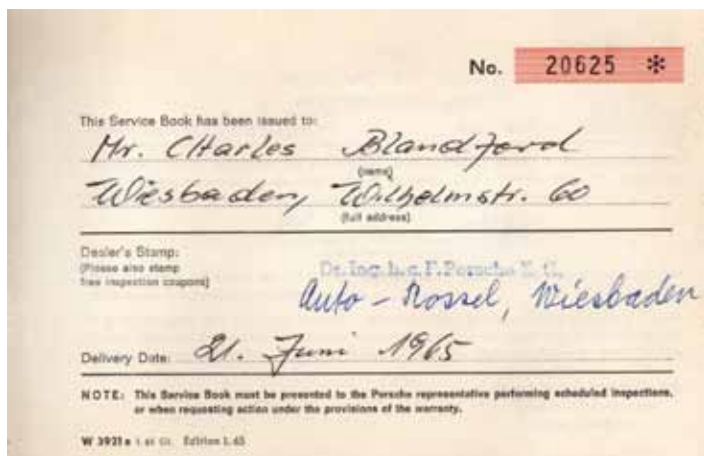 No. 20625 *
This Service Book has been issued to:
Mr. Charles Blandford
(name)
Wiesbaden, Wilhelmstr. 60
(full address)
Dealer's Stamp:
(Please also stamp
free inspection coupons)
Dr. Ing. h. c. F. Porsche K. G.
Auto - Rossel, Wiesbaden
Delivery Date: 21. Juni 1965
NOTE: This Service Book must be presented to the Porsche representative performing scheduled inspections,
or when requesting action under the provisions of the warranty.
W 3921 e Edition I. 65